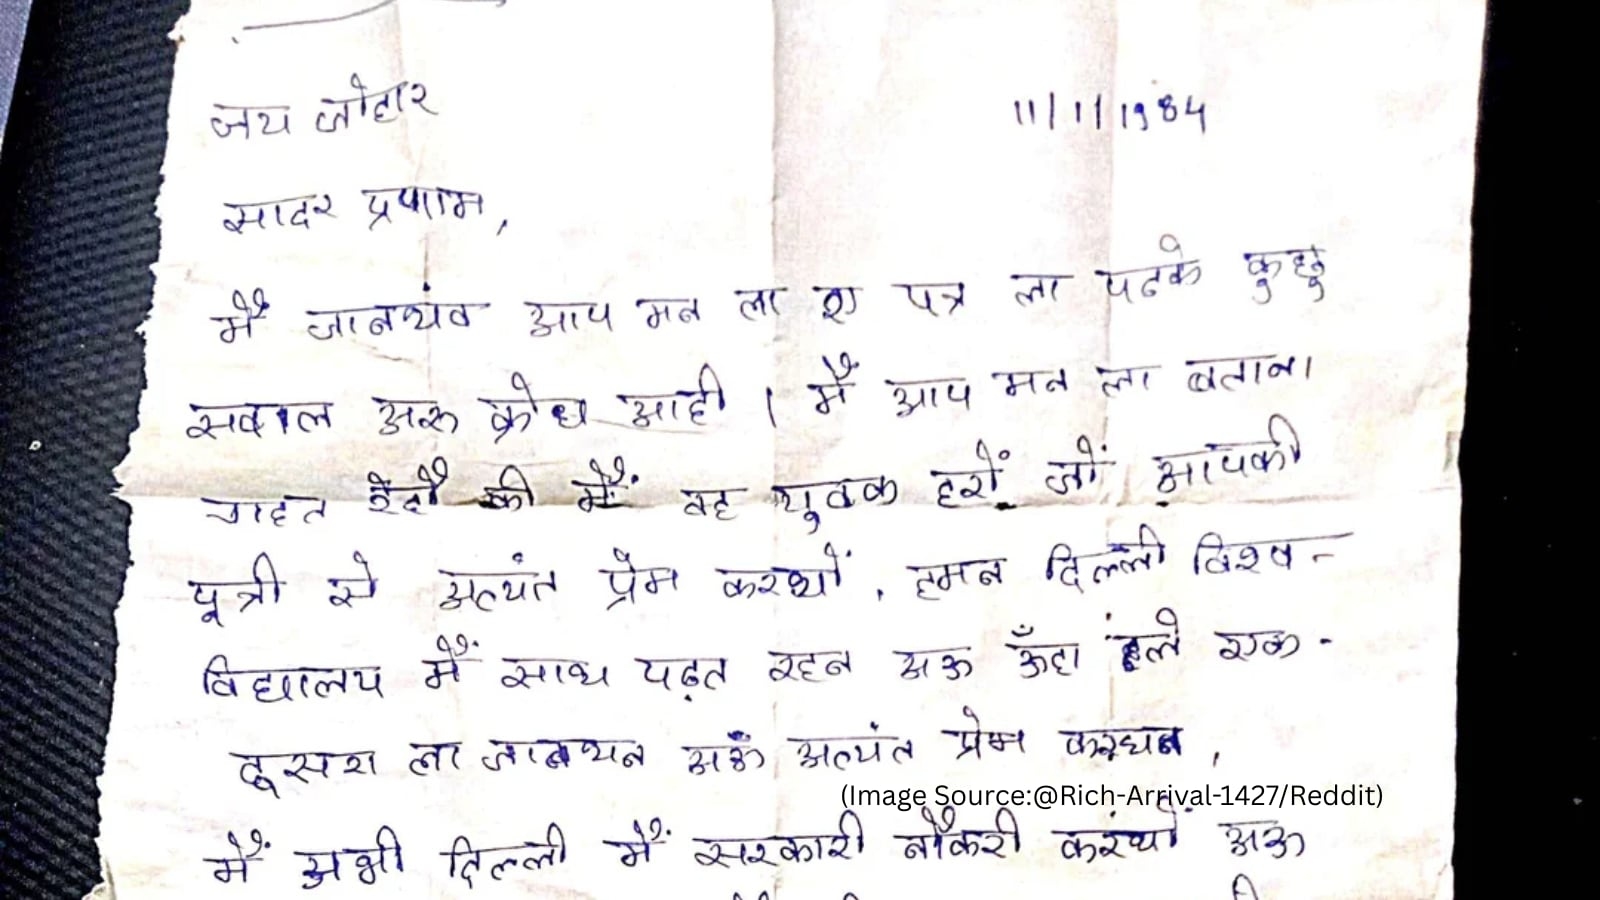 जय जोहार
11/1/1984
सादर प्रणाम,
मैं जानथव आप मन ला ए पत्र ला पढके कुछु
सवाल अरु क्रोध आही। मैं आप मन ला बताना
चाहत की मैं वह युवक हरों जों आपकी
पूत्री से अत्यंत प्रेम करथों, हमन दिल्ली विश्व-
विद्यालय मैं साथ पढ़त रहन अऊ ऊँहा ले एक-
दूसरा ला जानथन अऊ अत्यंत प्रेम करथन,
(Image Source:@Rich-Arrival-1427/Reddit)
मैं अभी दिल्ली मैं सरकारी नौकरी करंथों अऊ